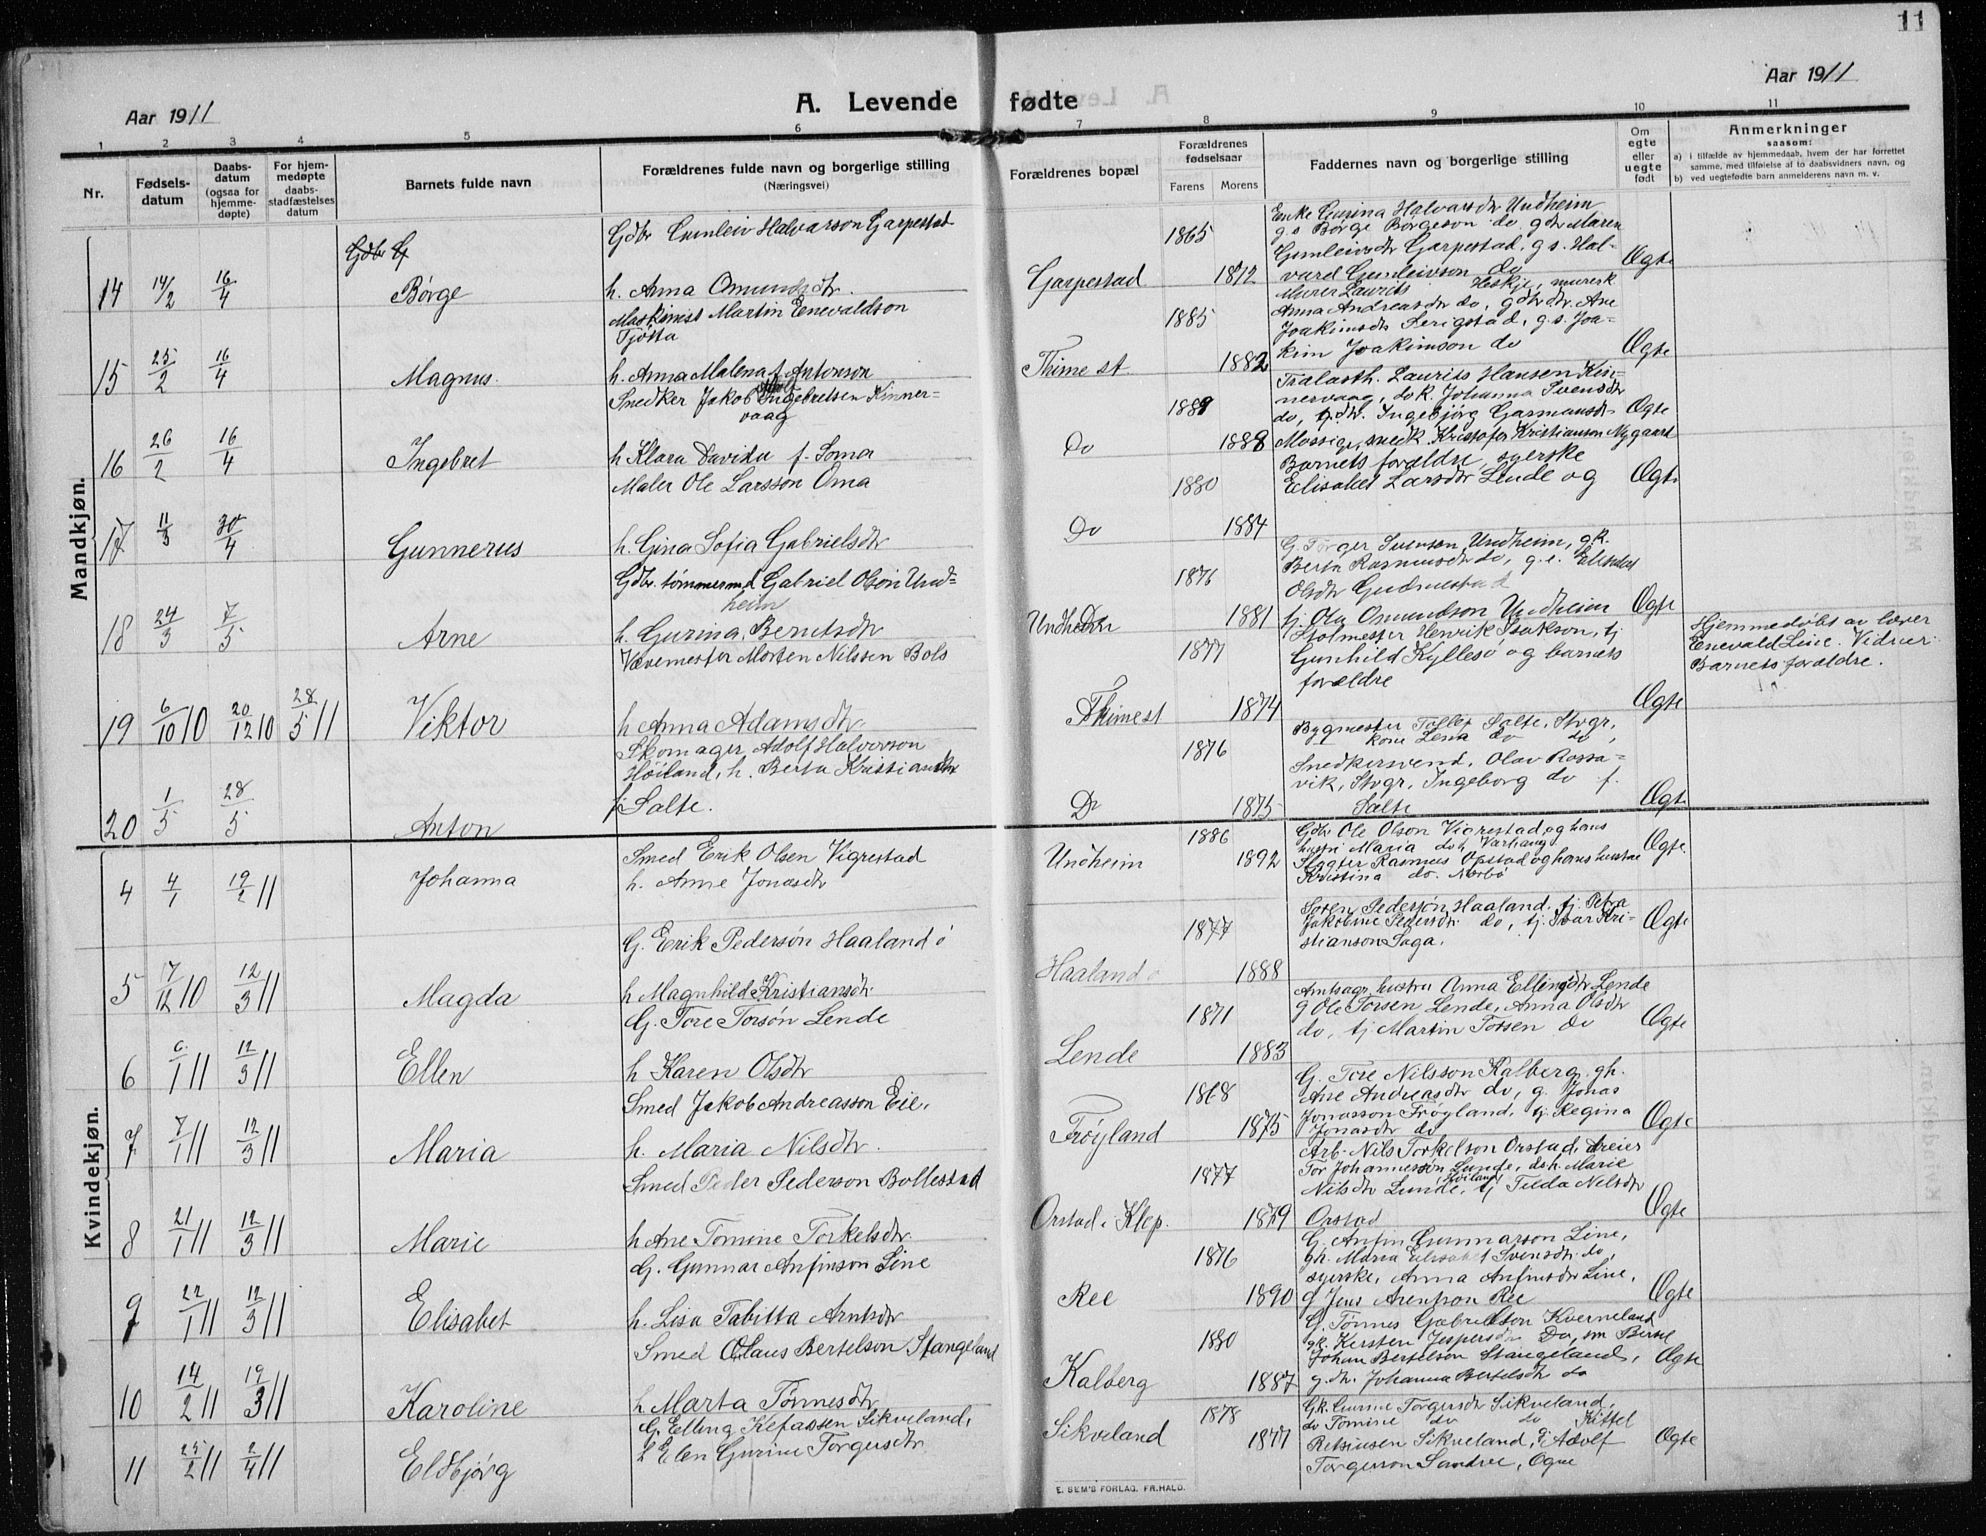 11
Aar 1911
A. Levende fødte
Aar 1911
1 2 3 4 5 6 7 8 9 10 11
Nr.
Fødsels-
datum
Daabs-
datum
(ogsaa for
hjemme-
døpte)
For hjem-
medøpte
daabs-
stadfæstelses
datum
Barnets fulde navn
Forældrenes fulde navn og borgerlige stilling
(Næringsvei)
Forældrenes bopæl
Forældrenes
fødselsaar
Farens Morens
Faddernes navn og borgerlige stilling
Om
egte
eller
uegte
født
Anmerkninger
saasom:
a) i tilfælde av hjemmedaab, hvem der har forrettet
samme, med tilføielse af to daabsvidners navn, og
b) ved uegtefødte barn anmelderens navn m. v.
Mandkjøn.
Gdbr G
14 14/2 16/4 Børge
Gdbr Gunleiv Halvarson Garpestad
h. Anna Omundsdtr.
Garpestad 1865 1872
Enke Gurina Halvarsdtr Undheim
g.s Børge Børgeson do. gdtr Maren
Gunleivsdtr Garpestad, g.s. Hal-
vard Gunleivson do
Ægte
15 25/2 16/4 Magnus.
Maskinist Martin Enevaldson
Tjøtta
h. Anna Malena f. Antonson
Thime st 1885 1882
Murer Laurits Heskje, murerk
Anna Andreasdtr do, gdbrdtr. Ane
Joakimsdtr Serigstad, g.s. Joa-
kim Joakimson do
Ægte
16 26/2 16/4 Ingebret
Snedker Jakob Adolf Ingebretsen Kinner-
vaag
h Klara Davida f. Soma
Do 1889 1888
Tralasth. Laurits Hansen Kin-
nervaag, do k. Johanna Svensdtr
do, g.dtr. Ingebjørg Garmansdtr
Mossige, snedk. Kristofer Kristianson Nygaard
Ægte
17 11/3 30/4 Gunnerus
Maler Ole Larsson Oma
h. Gina Sofia Gabrielsdtr
Do 1880 1884
Barnets forældre, syerske
Elisabet Larsdtr Lende og
Ægte
18 24/3 7/5 Arne
Gdbr. tømmermd Gabriel Olson Und-
heim
h. Gurina Berntsdtr
Undheim 1876 1881
G. Torger Svenson Undheim, g.k.
Berta Rasmusdtr do, g.e. Elisabet
Olsdtr Gudmestad
tj. Ola Omundson Undheim
Ægte
19 6/10 10 20/12 10 28/5 11 Viktor
Vævemester Morten Nilssen Bols
h Anna Adamsdtr
Thime st 1877 1874
Stolmester Henrik Isakson, tj.
Gunhild Kyllesø og barnets
forældre
Ægte
Hjemmedøbt av lærer
Enevald Line. Vidner
Barnets forældre.
20 1/5 28/5 Anton
Skomager Adolf Halvorson
Høiland, h. Berta Kristiansdtr
f. Salte.
Do 1876 1875
Bygmester Tollef Salte, Stvgr,
kone Lena do do,
Snedkersvend, Olav Rossa-
vik, Stvgr, Ingeborg do f.
Salte
Ægte
Kvindekjøn.
4 4/1 19/2 11 Johanna
Smed Erik Olsen Vigrestad
h. Anne Jonasdtr
Undheim 1886 1892
Gdbr Ole Olson Vigrestad og hans
hustru Maria do h Varhaug
Slagter Rasmus Opstad og hans hustru
Kristina do. Nærbø
Ægte
5 17/12 10 12/3 11 Magda
G. Erik Pedersøn Haaland ø
h Magnhild Kristiansdtr.
Haaland ø 1877 1888
Soren Pedersøn Haaland, tj. Petra
Jakobine Pedersdtr. do, tj. Ivar Kri-
stianson Laga.
Ægte
6 6/1 11 12/3 11 Ellen
G. Tore Torsøn Lende
h Karen Olsdtr
Lende 1871 1883
Amtsagr. hustru Anna Ellingsdtr Lende
g Ole Torsen Lende, Anna Olsdtr
do, tj Martin Torsen do
Ægte
7 7/1 11 12/3 11 Maria
Smed Jakob Andreasson Eie.
h. Maria Nilsdtr.
Frøyland 1868 1875
G. Tore Nilsson Kalberg, gh.
Ane Andreasdtr do, g. Jonas
Jonasson Frøyland, tj Regina
Jonasdtr do
Ægte
8 21/1 11 12/3 11 Marie
Smed Peder Pederson Bollestad
h Ane Tomine Torkelsdtr.
Orstad i Klep. 1877 1879
Arb. Nils Torkelson Orstad, dreier
Tor Johannesson Lunde, do h. Marie
Nilsdtr Lunde, Høiland, tj Tilda Nilsdtr
Orstad
Ægte
9 22/1 11 12/3 11 Elisabet
G. Gunnar Anfinson Line
h. Lisa Tabitta Arntsdtr
Ree 1876 1890
G. Anfin Gunnarson Line,
gh. Maria Elisabet Svensdtr. do,
syerske, Anna Anfinsdtr Line,
g Jens Arentson Ree
Ægte
10 14/2 11 19/3 11 Karoline
Smed Olaus Bertelson Stangeland
h Marta Tønnesdtr
Kalberg 1880 1887
G. Tønnes Gabrielson Kverneland
gk. Kersten Jespersdtr Do, sm Bertel
Johan Bertelson Stangeland,
g.dtr. Johanna Bertelsdtr do
Ægte
11 25/2 11 2/4 11 Eldbjørg
G. Elling Kefassen Sikveland,
h Elen Gurine Torgersdtr
Sikveland 1878 1877
Gk. Gurine Torgersdtr Sikveland,
do Tomine do do Kittel
Reisiusen Sikveland, g. Adolf
Torgerson Sandve, Ogne
Ægte
E. SEM'S FORLAG, FR.HALD.